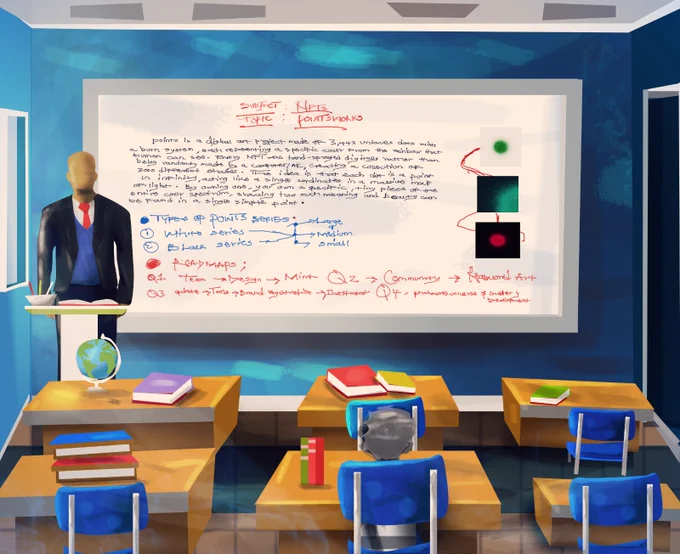 Subject : NFTS
Topic : POINTSWORKS
points is a digital art project made of 3,043 unique dots using
a born system, each representing a specific color from the rainbow that
human can see. Every NFT was hand-sprayed digitally rather than
being randomly made by a computer/AI, creating a collection of
different The idea is that each dot is a point
in infinity, acting like a single coordinates in a massive map
of light. By owning one, you own a specific, tiny piece of the
entire color spectrum, showing how much meaning and beauty can
be found in a single simple point.
TYPES OF POINTS SERIES : Large
① White series Medium
② Black series small
ROADMAPS ;
Q1 Team → Design → Mint Q2 → Community → Art
Q3 → → Brand registration → Investment Q4 -